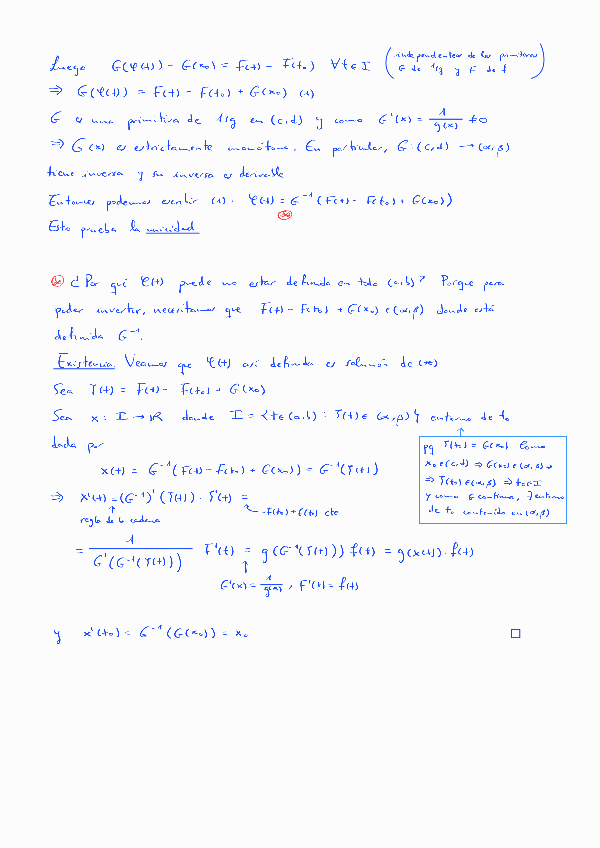 Luego G(φ(t)) - G(x₀) = F(t) - F(t₀) ∀t∈I (independiente de las primitivas
G de 1/g y F de f)
⇒ G(φ(t)) = F(t) - F(t₀) + G(x₀) (1)
G es una primitiva de 1/g en (c,d) y como G'(x) = 1/g(x) ≠ 0
⇒ G(x) es estrictamente monótona. En particular, G: (c,d) → (α,β)
tiene inversa y su inversa es derivable
Entonces podemos escribir (1). φ(t) = G⁻¹(F(t) - F(t₀) + G(x₀))
Esto prueba la unicidad
¿Por qué φ(t) puede no estar definida en todo (a,b)? Porque para
poder invertir, necesitamos que F(t) - F(t₀) + G(x₀) ∈ (α,β) donde está
definida G⁻¹.
Existencia Veamos que φ(t) así definida es solución de (*)
Sea ζ(t) = F(t) - F(t₀) + G(x₀)
Sea x: I → ℝ donde I = {t∈(a,b) : ζ(t) ∈ (α,β)} entorno de t₀
dada por
x(t) = G⁻¹(F(t) - F(t₀) + G(x₀)) = G⁻¹(ζ(t))
pq ζ(t₀) = G(x₀) Como
x₀∈(c,d) ⇒ G(x₀)∈(α,β)
⇒ ζ(t₀)∈(α,β) ⇒ t₀∈I
y como G continua, ∃ entorno
de t₀ contenido en (α,β)
⇒ x'(t) = (G⁻¹)'(ζ(t)) · ζ'(t) =
regla de la cadena
-F(t₀) + G(x₀) cte
= 1/G'(G⁻¹(ζ(t))) F'(t) = g(G⁻¹(ζ(t))) f(t) = g(x(t)) · f(t)
G'(x) = 1/g(x), F'(t) = f(t)
y x'(t₀) = G⁻¹(G(x₀)) = x₀ □